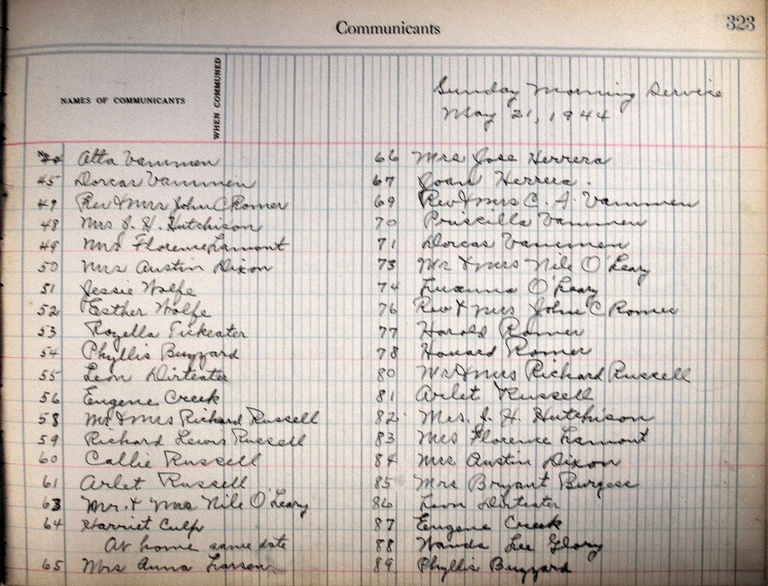 Communicants
323
NAMES OF COMMUNICANTS
WHEN COMMUNED
Sunday Morning Service
May 21, 1944
Atta Vammen
45 Dorcas Vammen
47 Rev & Mrs John C Romer
48 Mrs J. H. Hutchison
49 Mrs Florence Lamont
50 Mrs Austin Dixon
51 Jessie Wolfe
52 Esther Wolfe
53 Rozella Eickeater
54 Phyllis Buzzard
55 Leon Dirteater
56 Eugene Creek
58 Mr & Mrs Richard Russell
59 Richard Lewis Russell
60 Callie Russell
61 Arlet Russell
63 Mr. & Mrs Nile O'Leary
64 Harriet Culp
At home same date
65 Mrs Anna Larson
66 Mrs Jose Herrera
67 Joan Herrera.
69 Rev & Mrs C. A. Vammen
70 Priscilla Vammen
71 Dorcas Vammen
73 Mr & Mrs Nile O'Leary
74 Luanna O'Leary
76 Rev & Mrs John C Romer
77 Harold Romer
78 Howard Romer
80 Mr & Mrs Richard Russell
81 Arlet Russell
82 Mrs. J. H. Hutchison
83 Mrs Florence Lamont
84 Mrs Austin Dixon
85 Mrs Bryant Burgess
86 Leon Dirteater
87 Eugene Creek
88 Wanda Lee Glory
89 Phyllis Buzzard